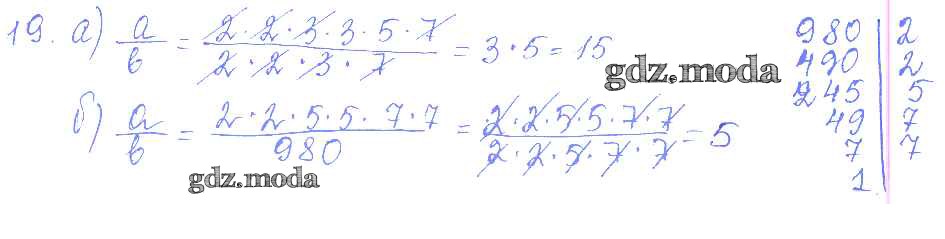 19. а) a/b = 2·2·3·3·5·7 / 2·2·3·7 = 3·5 = 15
gdz.moda
б) a/b = 2·2·5·5·7·7 / 980 = 2·2·5·5·7·7 / 2·2·5·7·7 = 5
gdz.moda
980 | 2
490 | 2
245 | 5
49 | 7
7 | 7
1